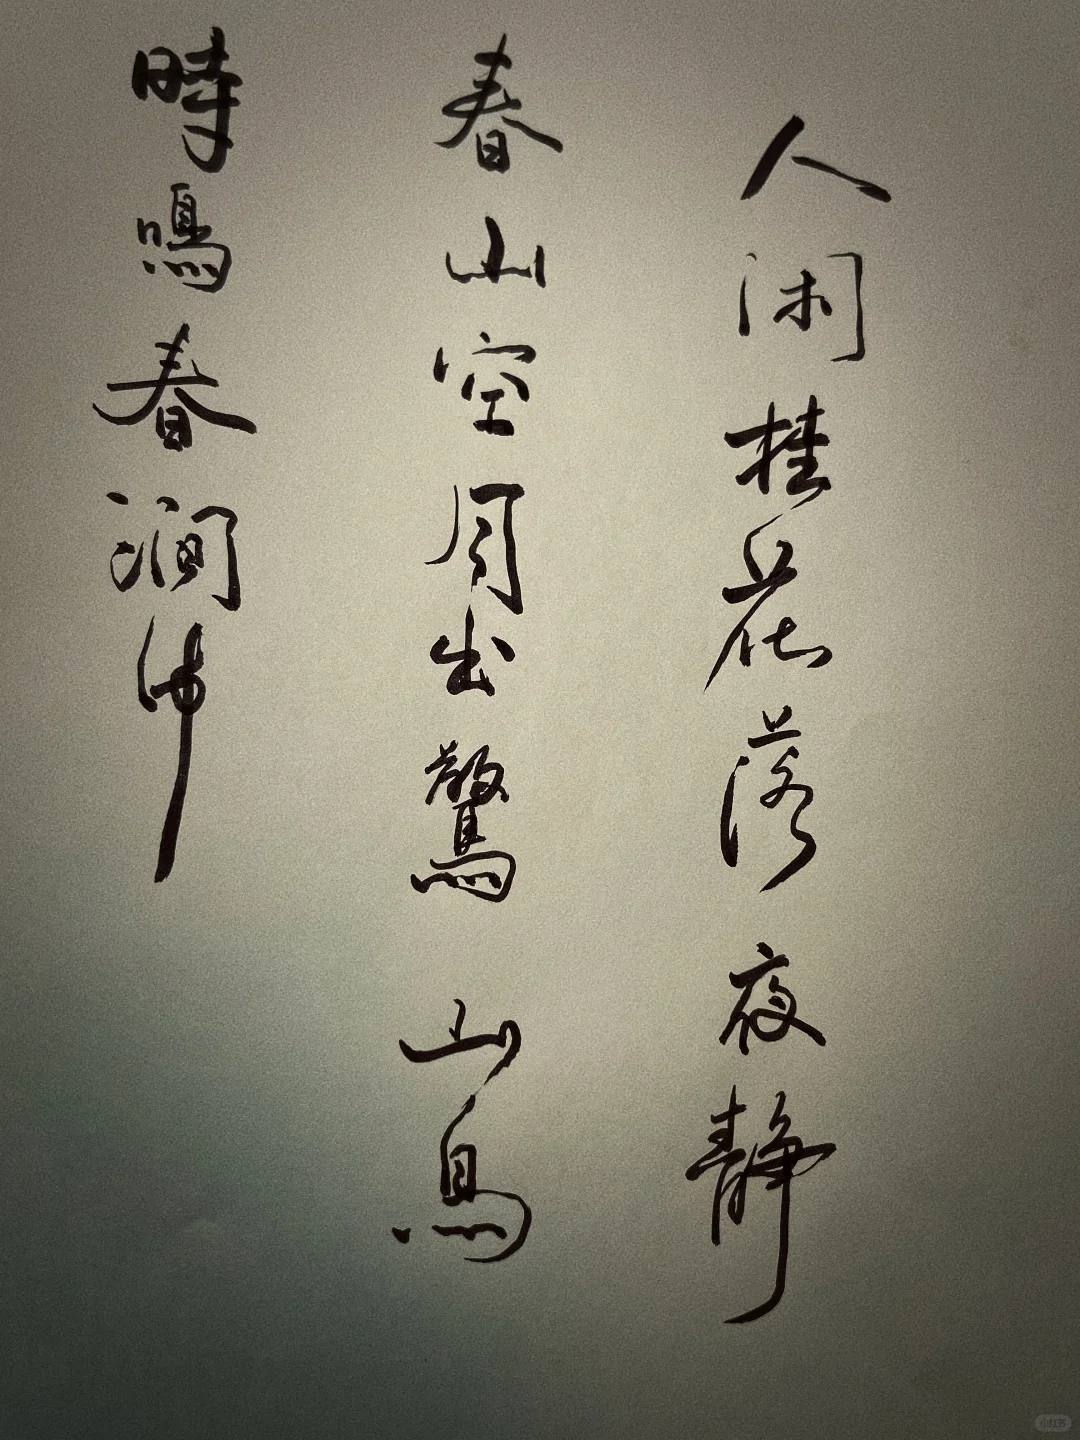 人闲桂花落夜静
春山空月出驚山鳥
時鳴春澗中
小红书